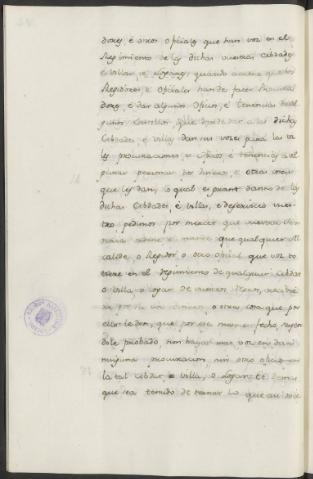 dores é otros oficiales que han voz en el
Regimiento de las dichas vuestras Cibdades
é villas, é Logares, quando acaesce que los
Regidores, é oficiales han de facer Procura
dores, é dar algunos oficios, é tenencias de al
gunos Castillos, que
Cibdades é villas dan sus voces para las ta
les procuraciones, é oficios é tenencias a al
gunas personas por dineros, é otras cosas
que les dan, lo qual es grant danno de las
dichas Cibdades, é villas, é deservicio vues
tro, pedimos por merced que vuestra Al
ordene é mande que qualquier Al
calde, o Regidor, o otro oficial que voz to
viere en el regimiento de qualquier cibdat
o villa, o logar de vuestros Regnos,
por dineros, o otras cosa que por
ello le den, que por ese mesmo fecho, seyen
dole probado, non haya mas voz en dar
ninguna procuracion, nin otro oficio en
la tal cibdat, o villa, o Logar é demas
que sea tenido de tornar lo que asi